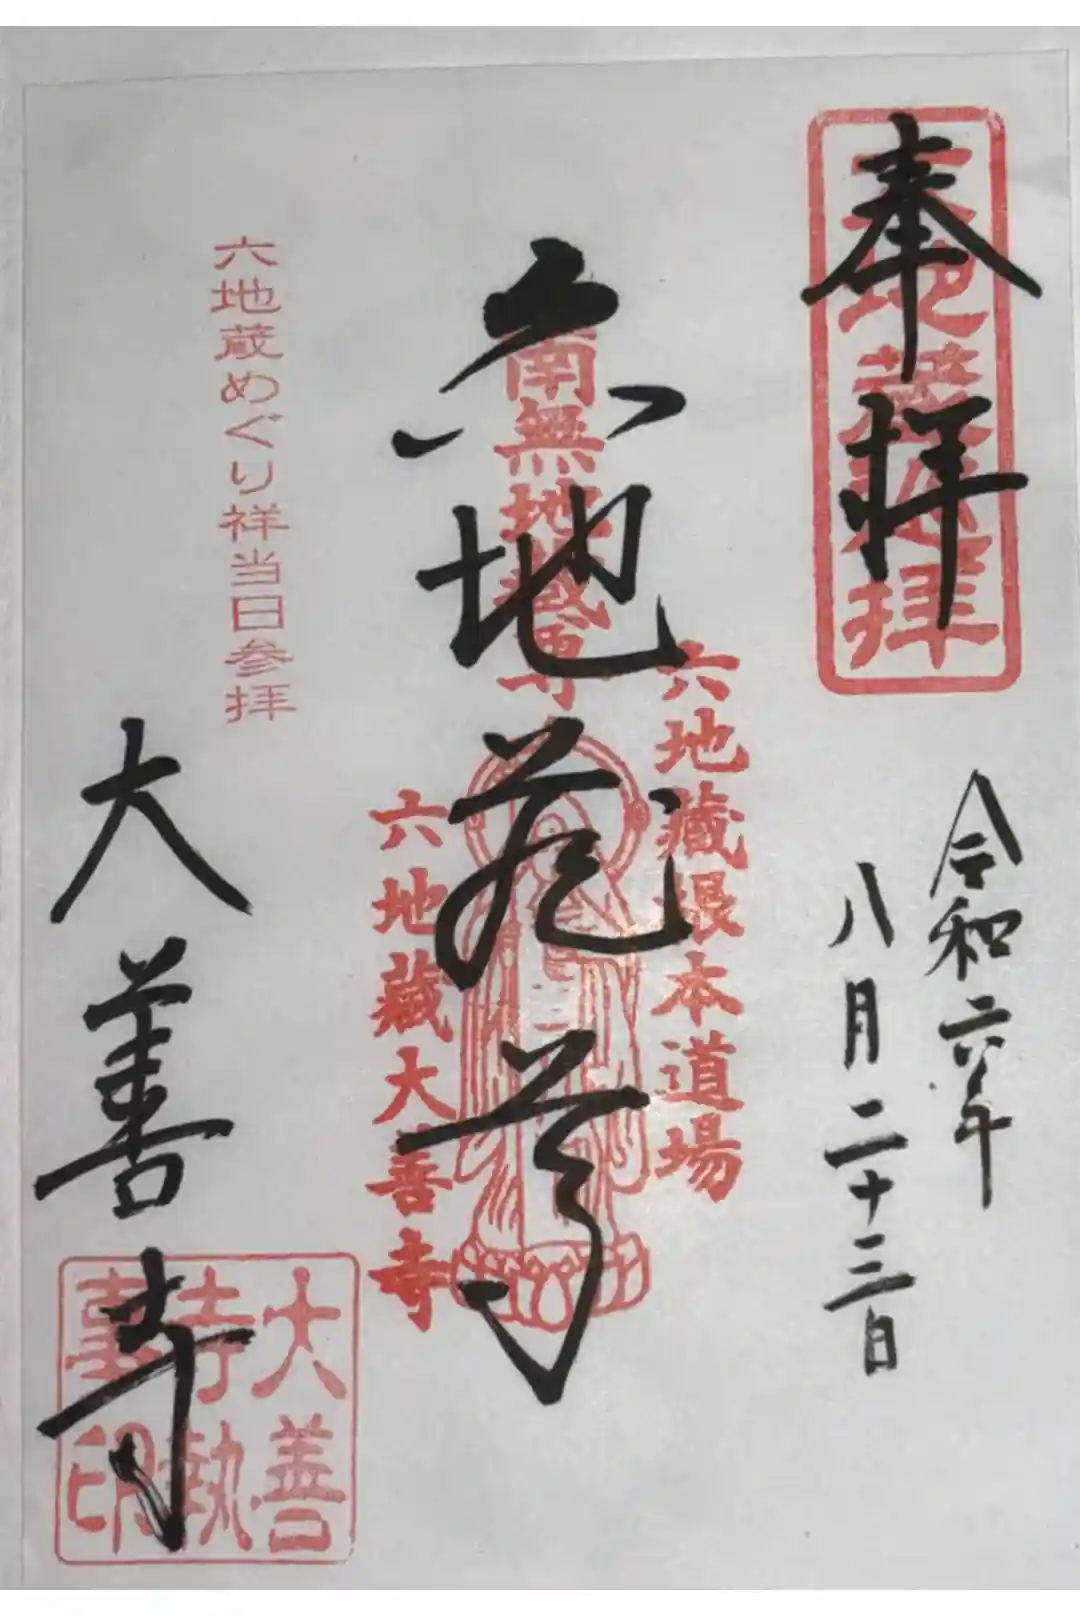 奉拝
令和六年
八月二十三日
六地蔵尊
南無地蔵尊
六地蔵根本道場
六地蔵大善寺
六地蔵めぐり祥当日参拝
大善寺
大善寺執事印